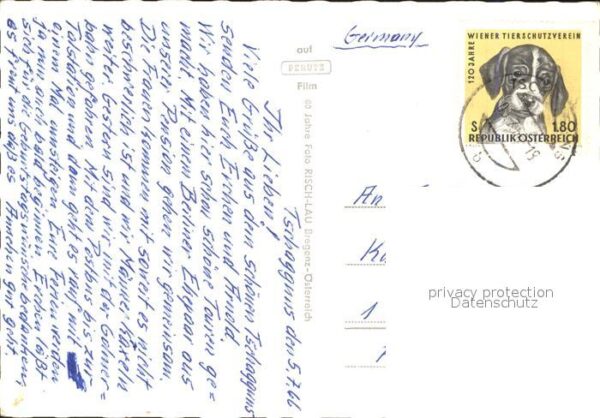 Tschagguns den 5.7.66
Ihr Lieben!
Viele Grüße aus den schönen Tschagguns
senden Euch Erchen und Arnold.
Wir haben hier schon schöne Touren ge=
macht. Mit einem Berliner Ehepaar aus
unserer Pension gehen wir gemeinsam.
Die Frauen kommen mit soweit es nicht
absturzreich ist und wir Männer
weiter. Gestern sind wir mit der
bahn gefahren. Mit dem Postbus bis zur
Talstation und dann geht es rauf mit
einem Na unsetwegen Eure Ferien werden
ja nun auch bald beginnen. Erchen läßt
sich für die Geburtstagswünsche bedanken,
es freut uns, das Arno in gut geht.
auf
PERUTZ
Film
60 Jahre Foto RISCH-LAU Bregenz-Österreich
Germany
120 JAHRE WIENER TIERSCHUTZVEREIN
S 1.80
REPUBLIK ÖSTERREICH
An
1
privacy protection
Datenschutz